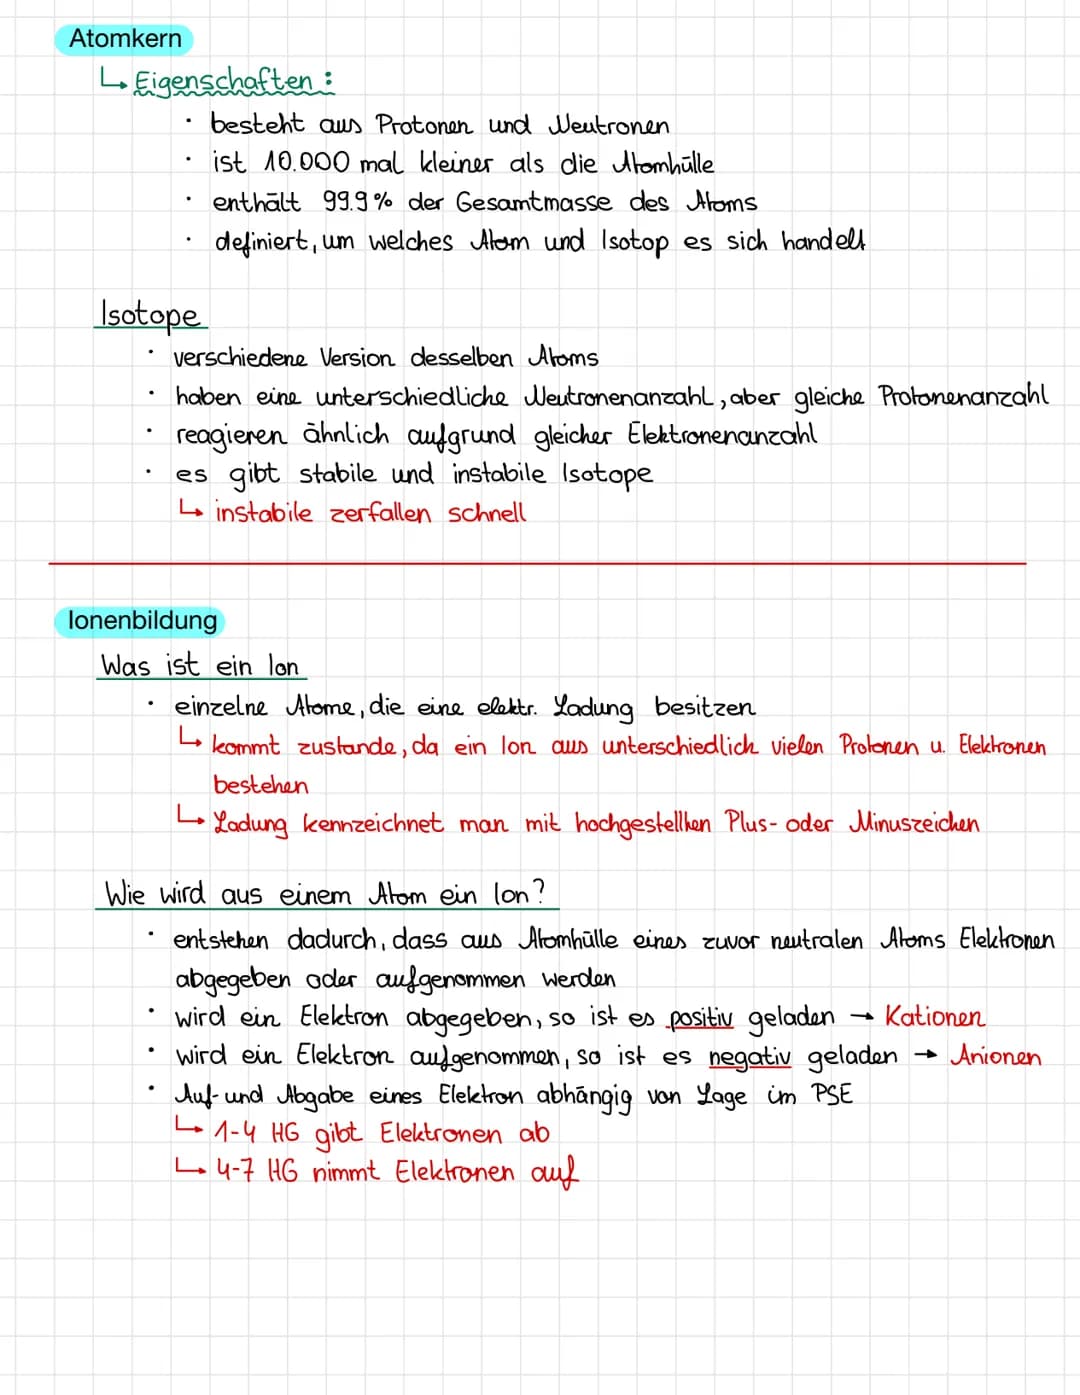 Atomkern
↳ Eigenschaften:
· besteht aus Protonen und Neutronen
· ist 10.000 mal kleiner als die Atomhülle
· enthält 99.9% der Gesamtmasse des Atoms
· definiert, um welches Atom und Isotop es sich handelt
Isotope
· verschiedene Version desselben Atoms
· haben eine unterschiedliche Neutronenanzahl, aber gleiche Protonenanzahl
· reagieren ähnlich aufgrund gleicher Elektronenanzahl
· es gibt stabile und instabile Isotope
↳ instabile zerfallen schnell
Ionenbildung
Was ist ein Ion
· einzelne Atome, die eine elektr. Ladung besitzen
↳ kommt zustande, da ein Ion aus unterschiedlich vielen Protonen u. Elektronen
bestehen
↳ Ladung kennzeichnet man mit hochgestellten Plus- oder Minuszeichen
Wie wird aus einem Atom ein Ion?
· entstehen dadurch, dass aus Atomhülle eines zuvor neutralen Atoms Elektronen
abgegeben oder aufgenommen werden
· wird ein Elektron abgegeben, so ist es positiv geladen → Kationen
· wird ein Elektron aufgenommen, so ist es negativ geladen → Anionen
· Auf- und Abgabe eines Elektron abhängig von Lage im PSE
↳ 1-4 HG gibt Elektronen ab
↳ 4-7 HG nimmt Elektronen auf